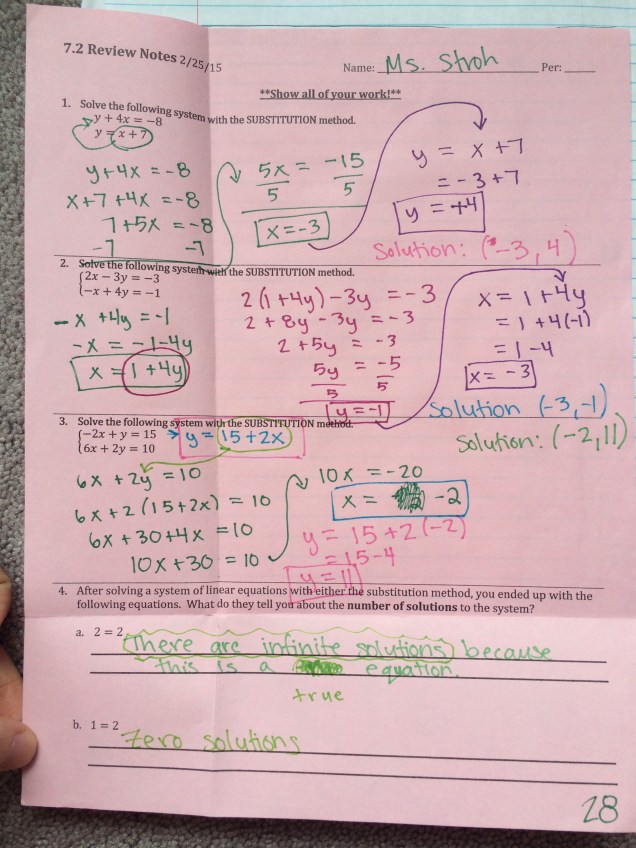 7.2 Review Notes 2/25/15
Name: Ms. Stroh Per:
**Show all of your work!**
1. Solve the following system with the SUBSTITUTION method.
y + 4x = −8
y = x + 7
y+4x = -8
x+7+4x = -8
7+5x = -8
-7 -7
5x = -15
5 5
x = -3
y = x + 7
= -3+7
y = +4
Solution: (-3, 4)
2. Solve the following system with the SUBSTITUTION method.
2x − 3y = −3
−x + 4y = −1
-x + 4y = -1
-x = -1-4y
x = 1 + 4y
2(1+4y) - 3y = -3
2 + 8y - 3y = -3
2 + 5y = -3
5y = -5
5 5
y = -1
x = 1 + 4y
= 1 + 4(-1)
= 1 - 4
x = -3
Solution (-3, -1)
3. Solve the following system with the SUBSTITUTION method.
−2x + y = 15
6x + 2y = 10
y = 15 + 2x
Solution: (-2, 11)
6x + 2y = 10
6x + 2(15+2x) = 10
6x + 30+4x = 10
10x + 30 = 10
10x = -20
x = -2
y = 15 + 2(-2)
= 15 - 4
y = 11
4. After solving a system of linear equations with either the substitution method, you ended up with the
following equations. What do they tell you about the number of solutions to the system?
a. 2 = 2
There are infinite solutions because
this is a equation.
true
b. 1 = 2
Zero solutions
28